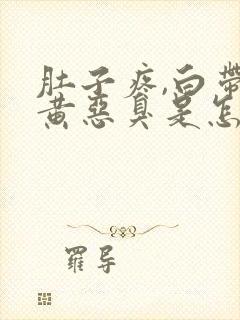 肚子疼,白帶
黄惡臭是怎
羅导